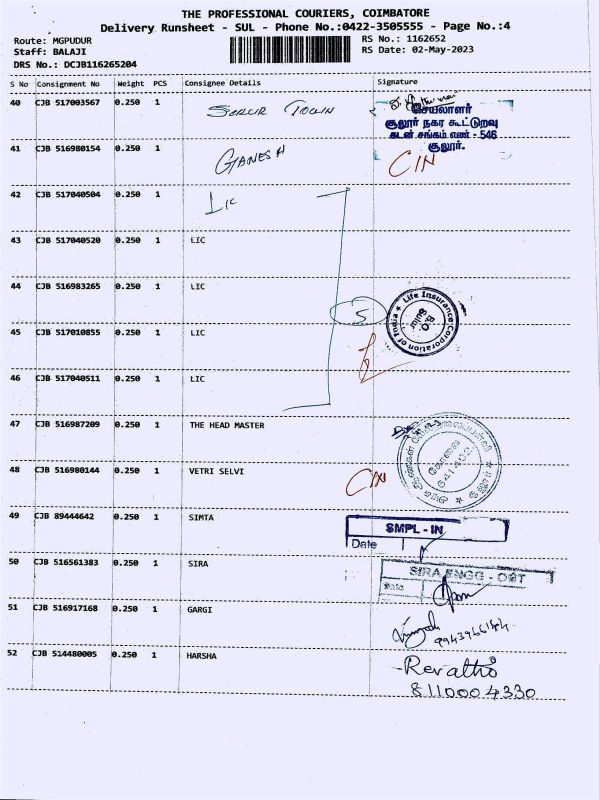 THE PROFESSIONAL COURIERS, COIMBATORE
Delivery Runsheet - SUL - Phone No.:0422-3505555 - Page No.:4
Route: MGPUDUR
Staff: BALAJI
DRS No.: DCJB116265204
RS No.: 1162652
RS Date: 02-May-2023
S No Consignment No Weight PCS Consignee Details Signature
40 CJB 517003567 0.250 1 SULUR TOWN
செயலாளர்
சூலூர் நகர கூட்டுறவு
கடன் சங்கம் எண் - 546
சூலூர்.
41 CJB 516980154 0.250 1 GANESH CIN
42 CJB 517040504 0.250 1 LIC
43 CJB 517040520 0.250 1 LIC
44 CJB 516983265 0.250 1 LIC
5
Life Insurance Corporation of India
B.O.
Sulur
45 CJB 517010855 0.250 1 LIC
46 CJB 517040511 0.250 1 LIC
47 CJB 516987209 0.250 1 THE HEAD MASTER
கோவை
641402
48 CJB 516980144 0.250 1 VETRI SELVI CIN
49 CJB 89444642 0.250 1 SIMTA
SMPL - IN
Date
50 CJB 516561383 0.250 1 SIRA
SIRA ENGG - OBT
Date
51 CJB 516917168 0.250 1 GARGI
52 CJB 514480005 0.250 1 HARSHA
Revathi
8110004330